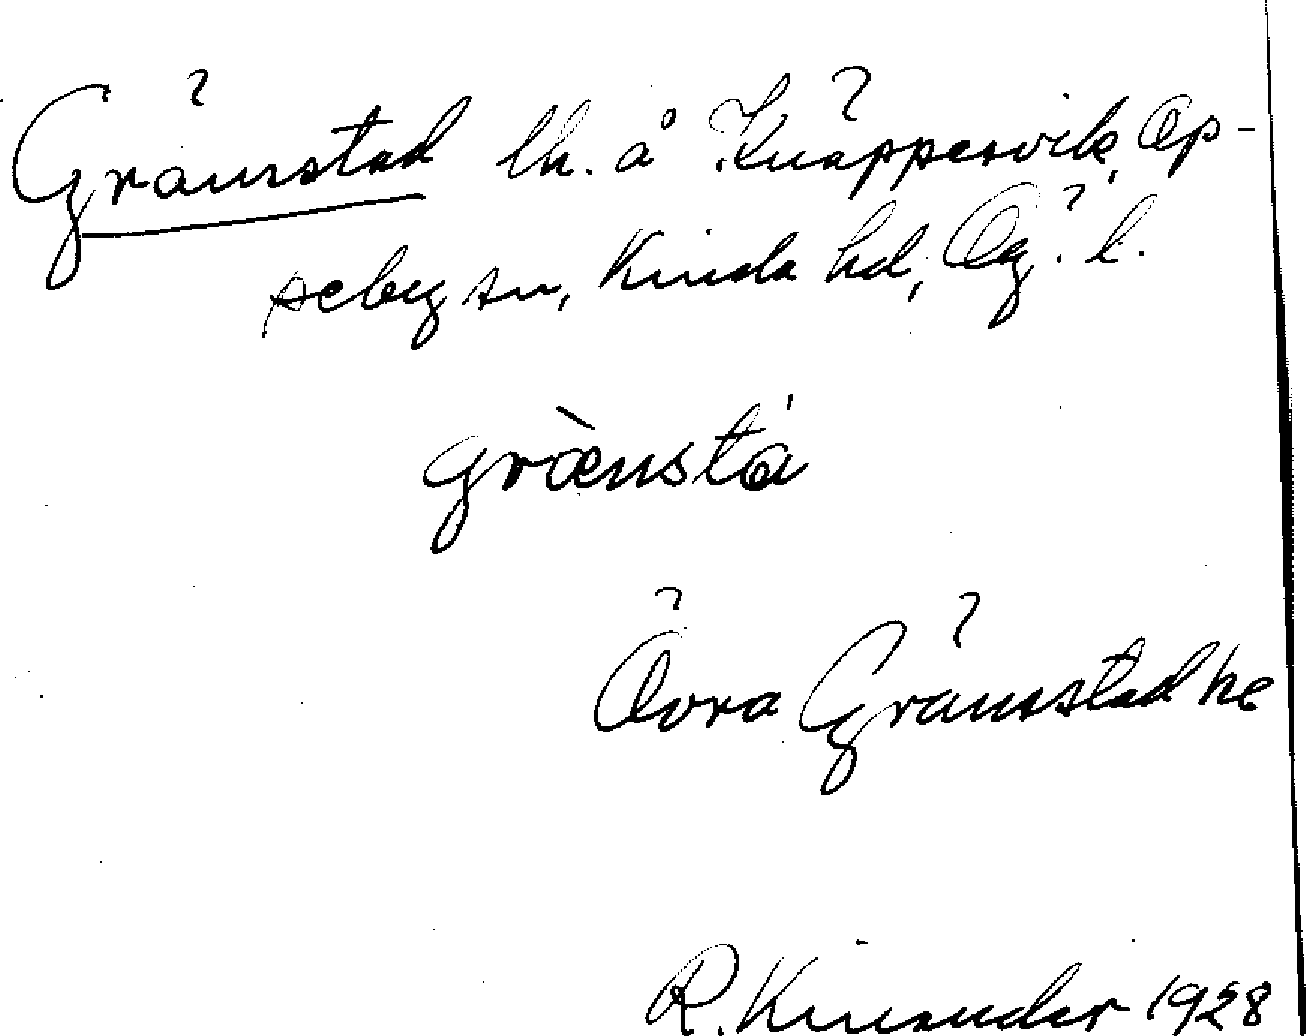 Gränstad lh. å Knäppesvik, Op-
peby sn, Kinda hd, Ög. l.
grænsta
Övra Gränstad ke
R. Kinander 1928